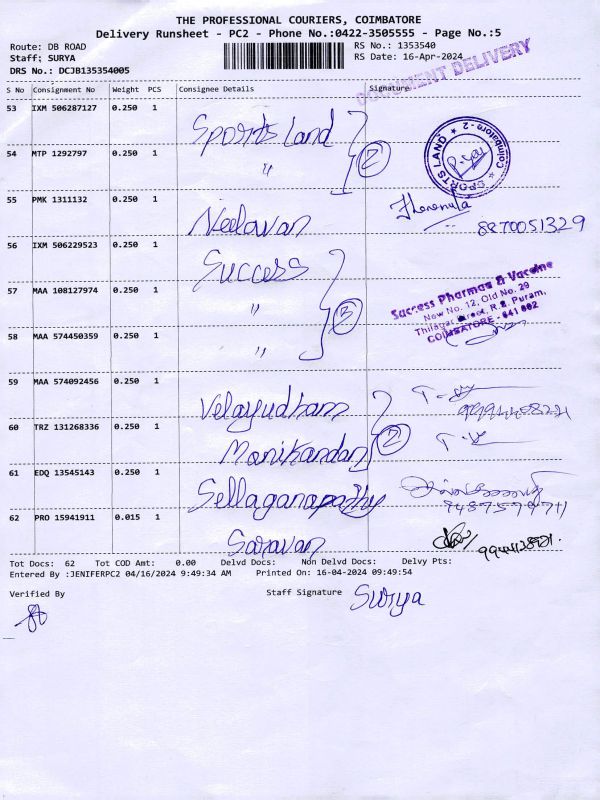 THE PROFESSIONAL COURIERS, COIMBATORE
Delivery Runsheet - PC2 - Phone No.:0422-3505555 - Page No.:5
Route: DB ROAD RS No.: 1353540
Staff; SURYA RS Date: 16-Apr-2024
DRS No.: DCJB135354005
DOCUMENT DELIVERY
S No Consignment No Weight PCS Consignee Details Signature
53 IXM 506287127 0.250 1 Sports Land
54 MTP 1292797 0.250 1 " 2
SPORTS LAND ★ Coimbatore-2 ★
55 PMK 1311132 0.250 1 Neelavan 8870051329
56 IXM 506229523 0.250 1 Success
57 MAA 108127974 0.250 1 " 3
58 MAA 574450359 0.250 1 "
Success Pharmas & Vaccine
New No. 12, Old No. 29
Thilagar Street, R.S. Puram,
COIMBATORE - 641 002
59 MAA 574092456 0.250 1 Velayudham
60 TRZ 131268336 0.250 1 Manikandan 2
61 EDQ 13545143 0.250 1 Sellaganapathy
62 PRO 15941911 0.015 1 Saravan
Tot Docs: 62 Tot COD Amt: 0.00 Delvd Docs: Non Delvd Docs: Delvy Pts:
Entered By :JENIFERPC2 04/16/2024 9:49:34 AM Printed On: 16-04-2024 09:49:54
Verified By Staff Signature Surya